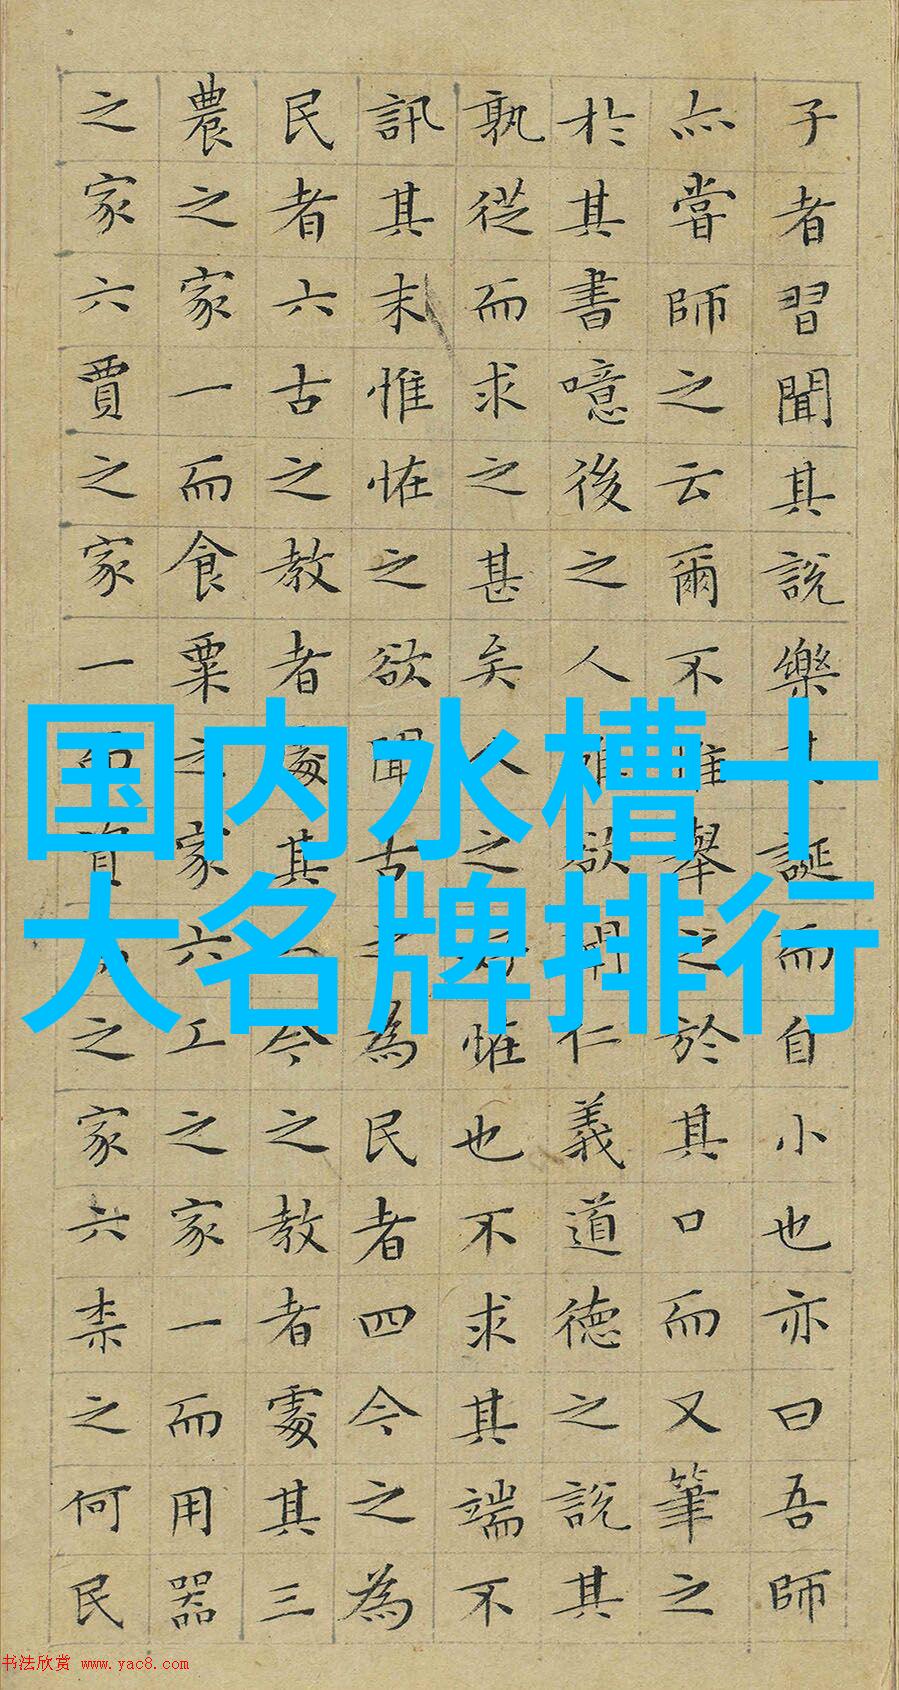 国内水槽十
大名牌排行
子者習聞其說樂其誕而自小也亦曰吾師
亦嘗師之云爾不惟舉之於其口而又筆之
於其書噫後之人雖欲聞仁義道德之說其
孰從而求之甚矣人之好恠也不求其端不
訊其末惟恠之欲聞古之為民者四今之為
民者六古之教者處其今之教者處其三
農之家一而食粟之家六工之家一而用器
之家六賈之家一而資之家六柰之何民
书法欣赏 www.yac8.com